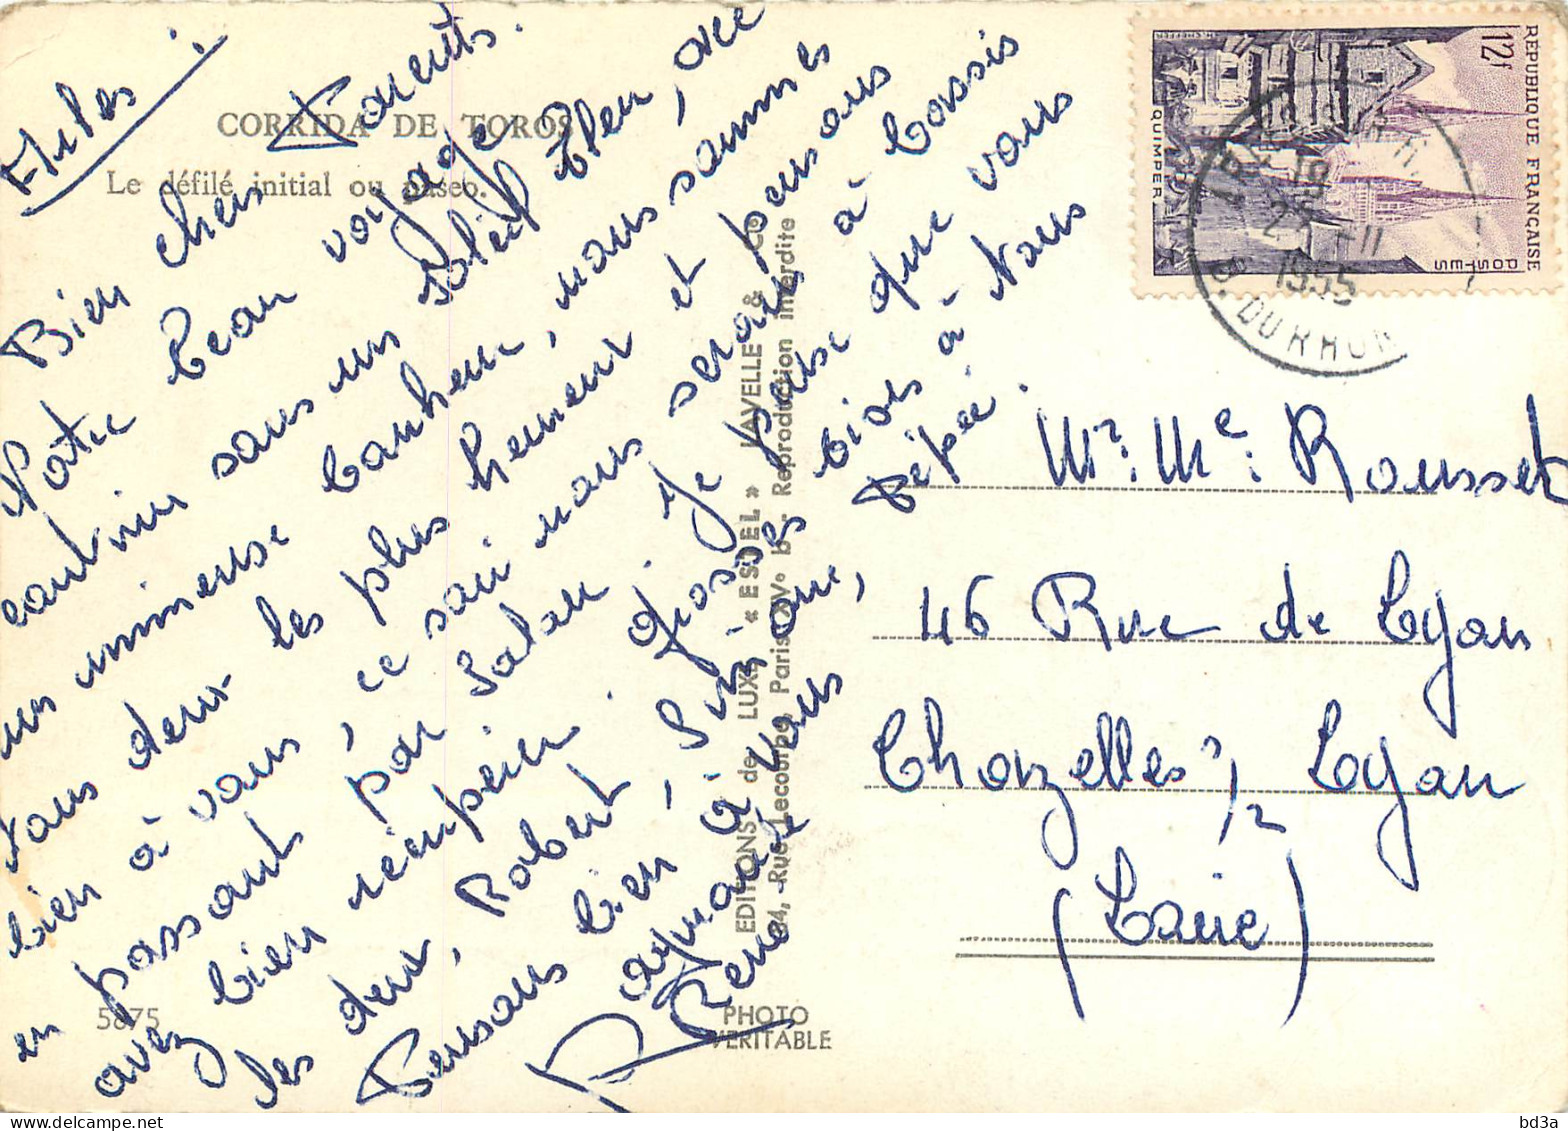 Arles.
CORRIDA DE TOROS
Le défilé initial ou paseo.
Bien chers Parents.
Notre beau voyage
continu sous un soleil bleu, avec
un immense bonheur, nous sommes
tous deux les plus heureux et pensons
bien à vous, ce soir nous serons à Cassis
en passant par Salon. Je pense que vous
avez bien récupérer. Grosses bises à Nous
les deux, Robert, Suzanne, Pépée.
Pensons bien à vous
Raymonde René
5875
EDITIONS de LUXE « ESTEL » LAVELLE & Co
84, Rue Lecourbe Paris XVe b. - Reproduction interdite
PHOTO
VERITABLE
REPUBLIQUE FRANÇAISE
12f
POSTES
QUIMPER
19
1955
B. DU RHONE
Mr. Me. Rousset
46 Rue de Lyon
Chazelles s/ Lyon
(Loire)
bd3a